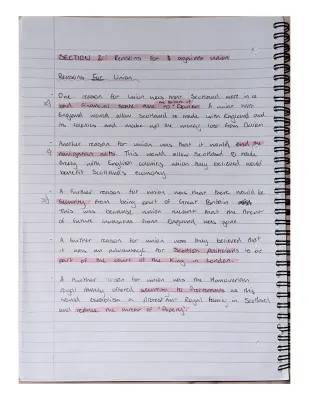 SECTION 2: Reasons for & against union
Reasons For Union
- One reason for union was that Scotland were in a
bad financial state due to the failure of Darien. A union with
England would allow Scotland to trade with England and
its colonies and make up the money lost from Darien
- Another reason for union was that it would end the
navigation acts. This would allow Scotland to trade
freely with English colonies which they believed would
benefit Scotland's economy.
- A further reason for union was that there would be
security from being part of Great Britain
This was because union meant that the threat
of future invasions from England was gone.
- A further reason for union was they believed that
it was an advantage for Scottish Politicians to be
part of the court of the King in London.
- A further reason for union was the Hanoverian
royal family offered securities to Protestants as this
would establish a Protestant Royal family in Scotland
and reduce the threat of "Popery".